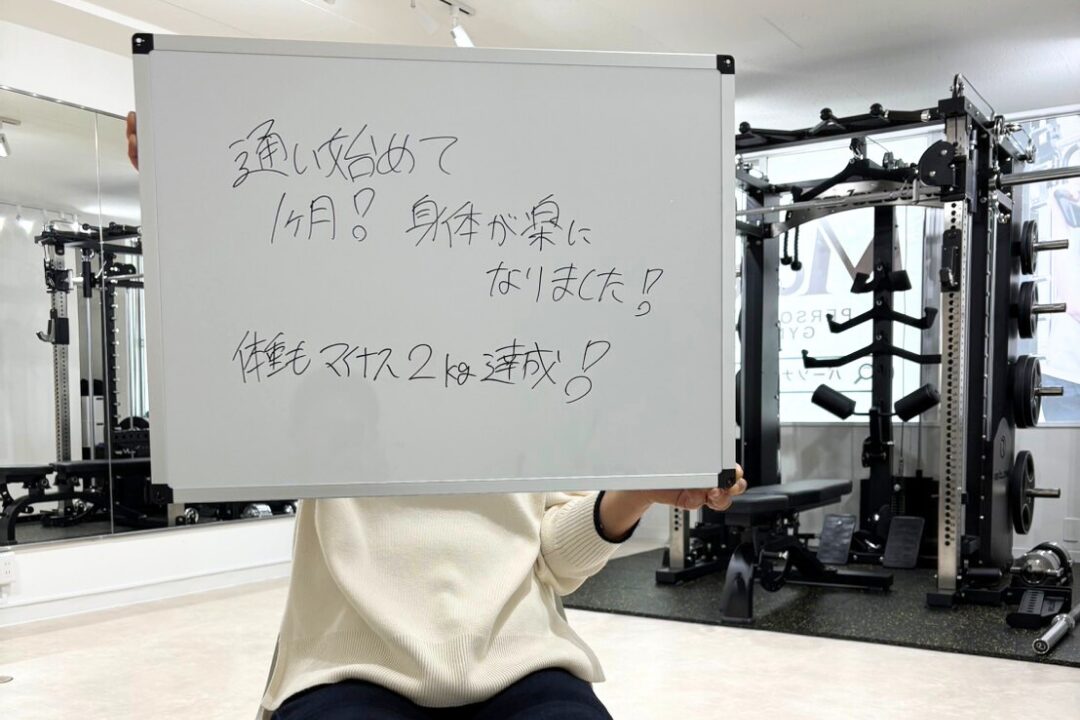 通い始めて
1ヶ月! 身体が楽に
なりました!
体重もマイナス2kg達成!
PERSO
GY
パーソナ